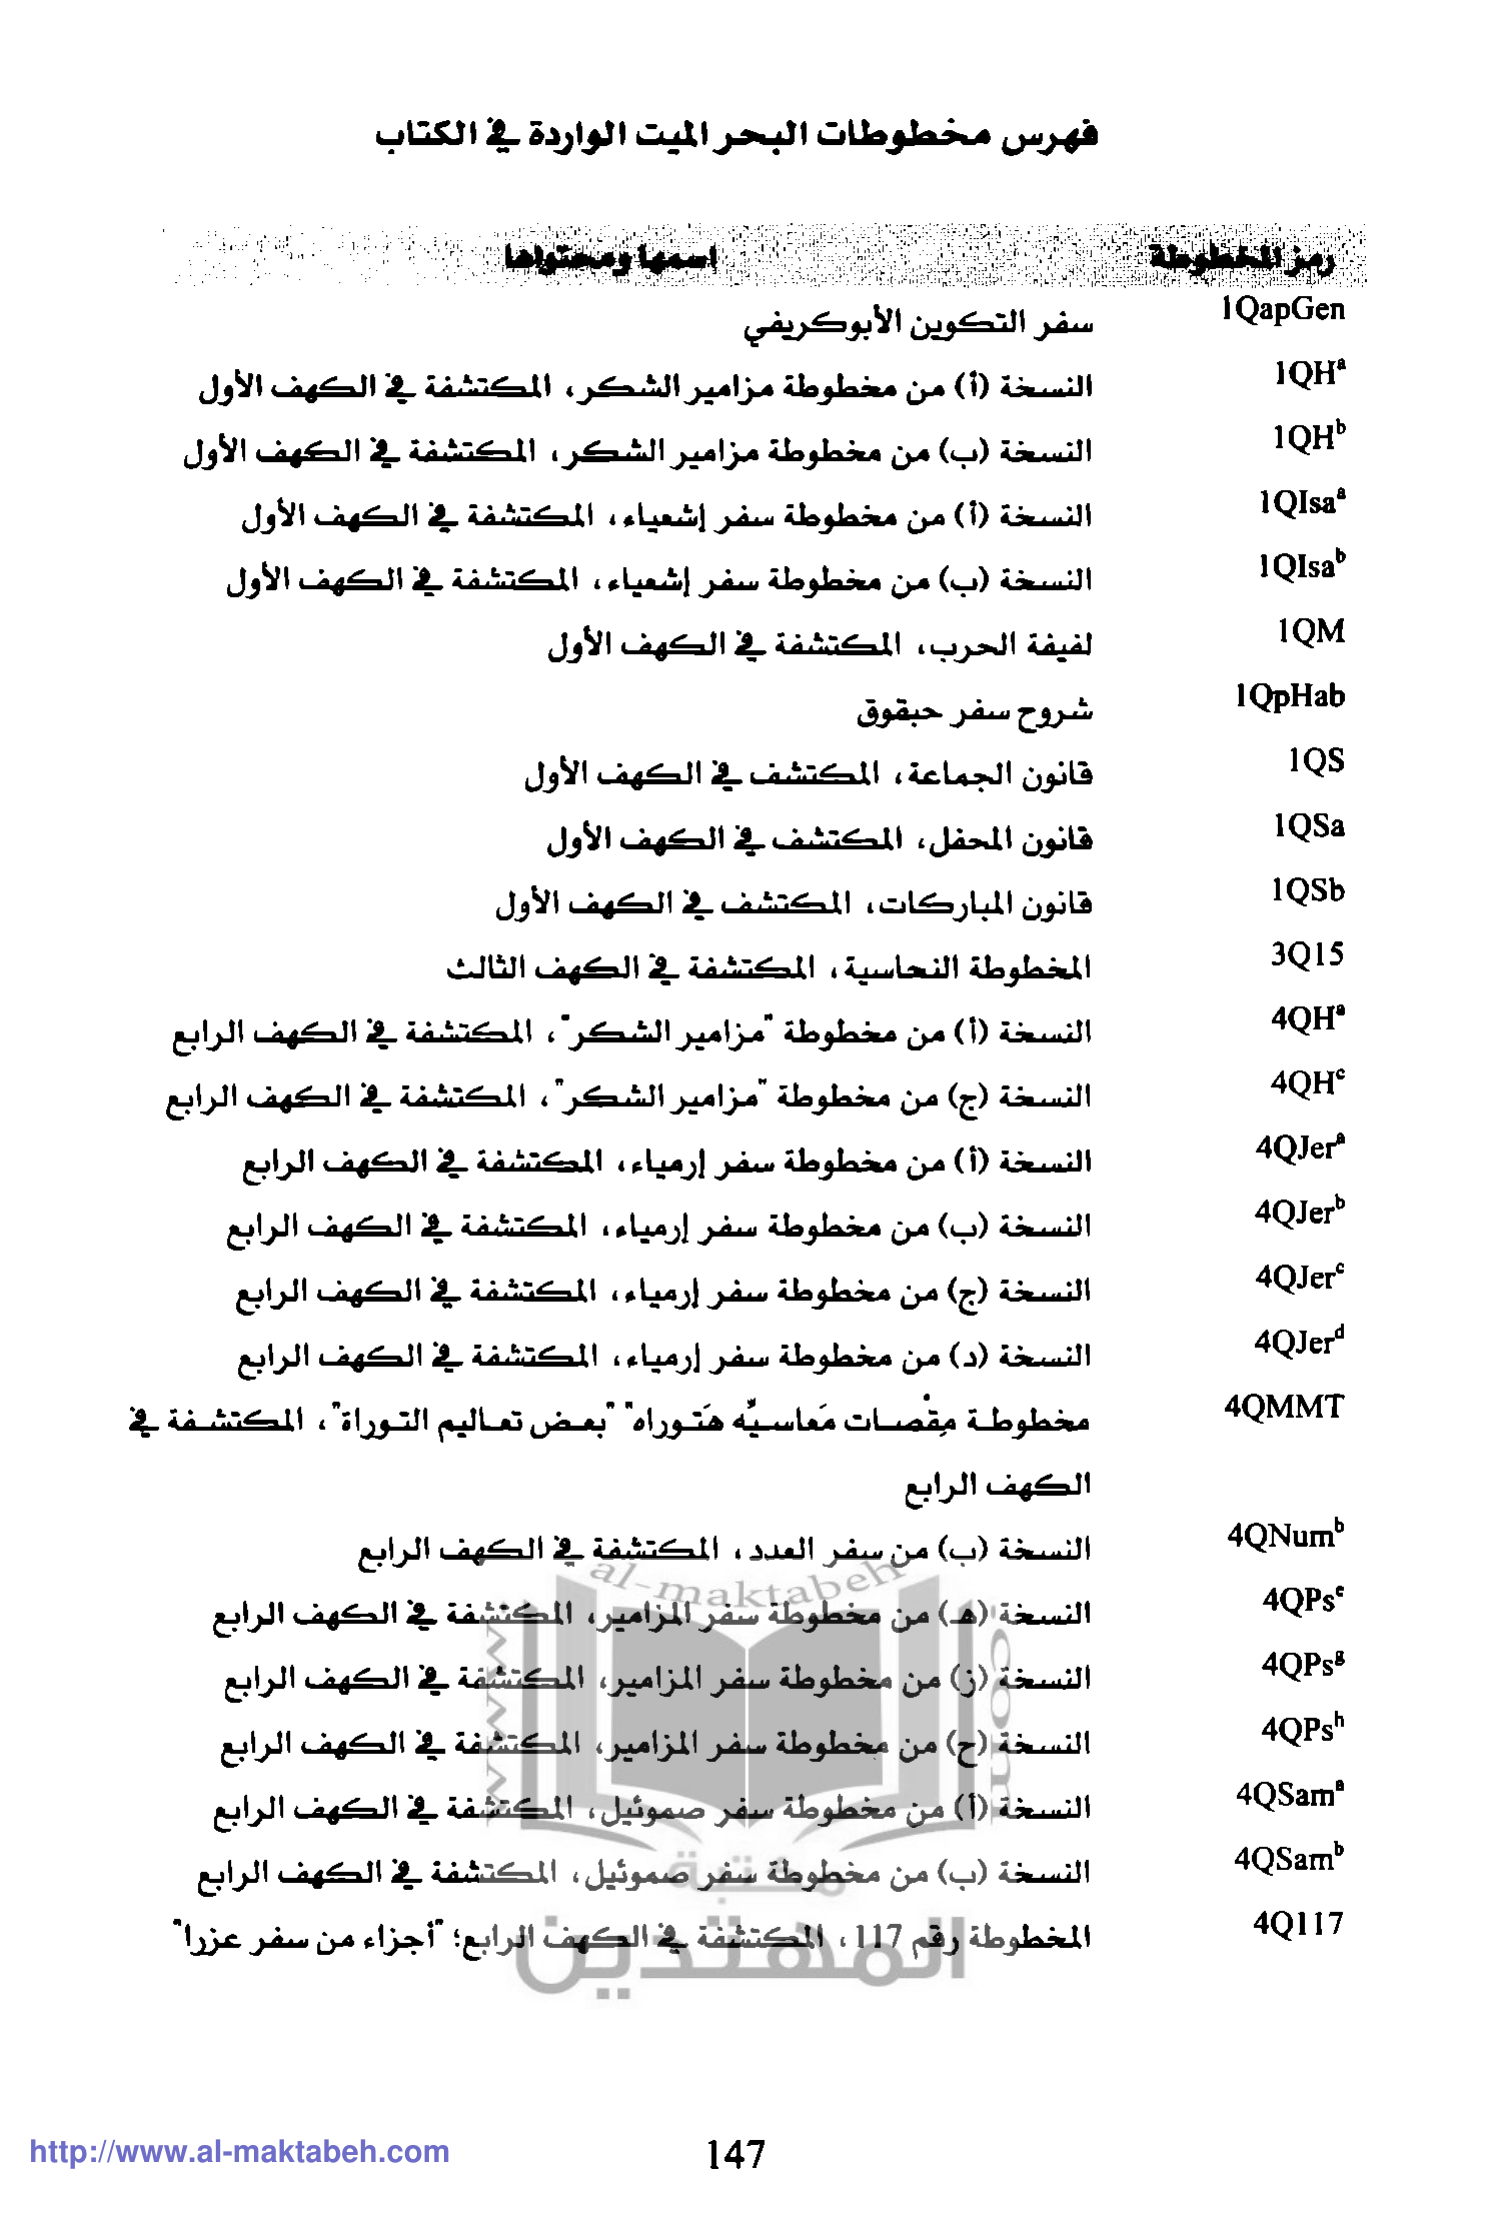 فهرس مخطوطات البحر الميت الواردة في الكتاب
رمز المخطوطة اسمها ومحتواها
1QapGen سفر التكوين الأبوكريفي
1QHᵃ النسخة (أ) من مخطوطة مزامير الشكر، المكتشفة في الكهف الأول
1QHᵇ النسخة (ب) من مخطوطة مزامير الشكر، المكتشفة في الكهف الأول
1QIsaᵃ النسخة (أ) من مخطوطة سفر إشعياء، المكتشفة في الكهف الأول
1QIsaᵇ النسخة (ب) من مخطوطة سفر إشعياء، المكتشفة في الكهف الأول
1QM لفيفة الحرب، المكتشفة في الكهف الأول
1QpHab شروح سفر حبقوق
1QS قانون الجماعة، المكتشف في الكهف الأول
1QSa قانون المحفل، المكتشف في الكهف الأول
1QSb قانون المباركات، المكتشف في الكهف الأول
3Q15 المخطوطة النحاسية، المكتشفة في الكهف الثالث
4QHᵃ النسخة (أ) من مخطوطة "مزامير الشكر"، المكتشفة في الكهف الرابع
4QHᶜ النسخة (ج) من مخطوطة "مزامير الشكر"، المكتشفة في الكهف الرابع
4QJerᵃ النسخة (أ) من مخطوطة سفر إرمياء، المكتشفة في الكهف الرابع
4QJerᵇ النسخة (ب) من مخطوطة سفر إرمياء، المكتشفة في الكهف الرابع
4QJerᶜ النسخة (ج) من مخطوطة سفر إرمياء، المكتشفة في الكهف الرابع
4QJerᵈ النسخة (د) من مخطوطة سفر إرمياء، المكتشفة في الكهف الرابع
4QMMT مخطوطة مِقْصات مَعاسيِّه هَتوراه" "بعض تعاليم التوراة"، المكتشفة في
الكهف الرابع
4QNumᵇ النسخة (ب) من سفر العدد، المكتشفة في الكهف الرابع
4QPsᵉ النسخة (هـ) من مخطوطة سفر المزامير، المكتشفة في الكهف الرابع
4QPsᵍ النسخة (ز) من مخطوطة سفر المزامير، المكتشفة في الكهف الرابع
4QPsʰ النسخة (ح) من مخطوطة سفر المزامير، المكتشفة في الكهف الرابع
4QSamᵃ النسخة (أ) من مخطوطة سفر صموئيل، المكتشفة في الكهف الرابع
4QSamᵇ النسخة (ب) من مخطوطة سفر صموئيل، المكتشفة في الكهف الرابع
4Q117 المخطوطة رقم 117، المكتشفة في الكهف الرابع؛ "أجزاء من سفر عزرا"
www.al-maktabeh.com
مكتبة
المهتدين
http://www.al-maktabeh.com
147